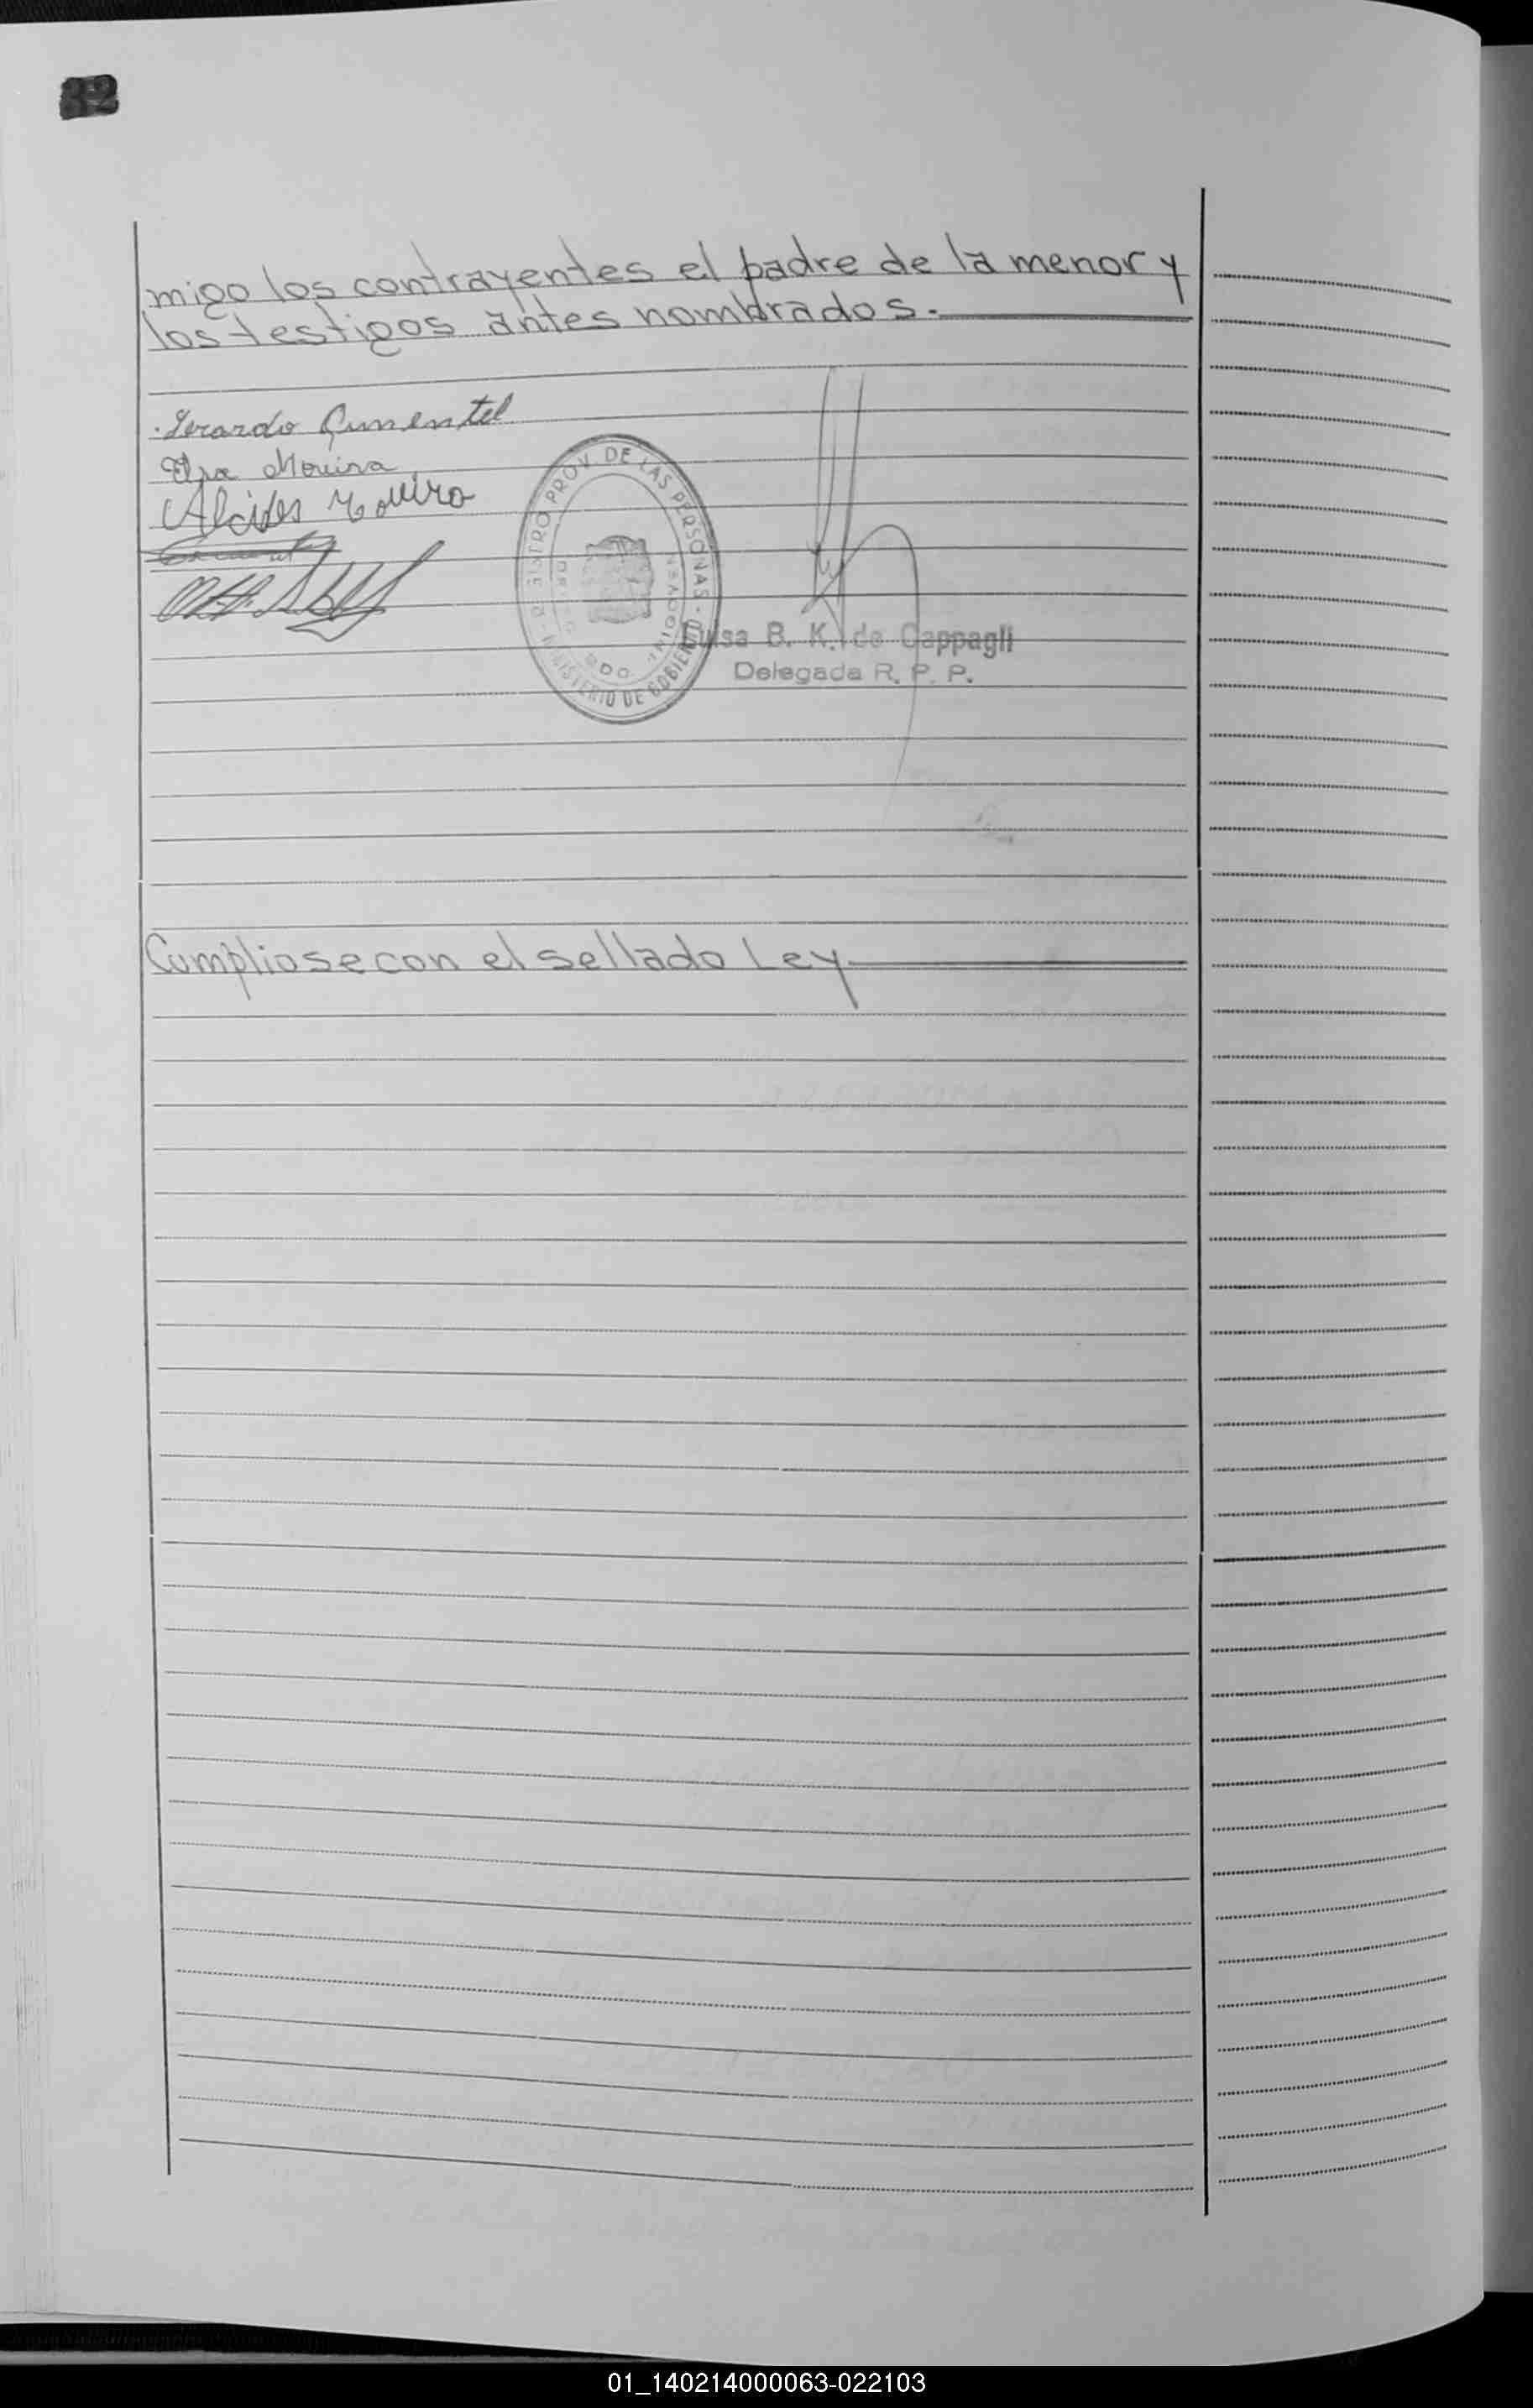 32
migo los contrayentes el padre de la menor y
los testigos antes nombrados.
Gerardo Pimentel
Elsa
Alcides
REGISTRO PROV. DE LAS PERSONAS
MINISTERIO DE GOBIERNO
Luisa B. K. de Cappagli
Delegada R. P. P.
Cumpliose con el sellado Ley
01_140214000063-022103